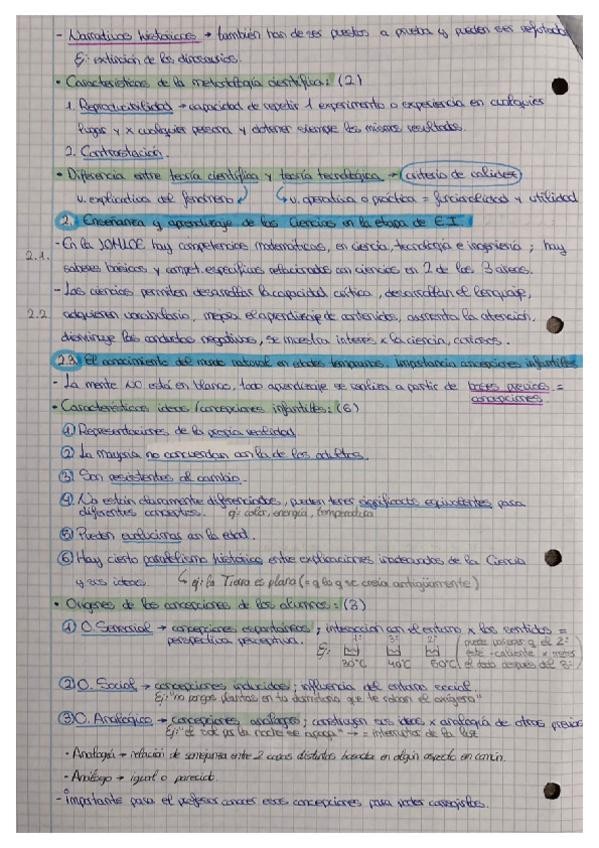 - Narrativas históricas → también han de ser puestas a prueba y pueden ser refutadas
Ej: extinción de los dinosaurios.
• Características de la metodología científica: (2)
1. Reproducibilidad → capacidad de repetir 1 experimento o experiencia en cualquier
lugar y x cualquier persona y obtener siempre los mismos resultados.
2. Contrastación.
• Diferencia entre teoría científica y teoría tecnológica → criterio de validez
v. explicativa del fenómeno ↙ ↳ v. operativa o práctica = funcionalidad y utilidad
2. Enseñanza y aprendizaje de las Ciencias en la etapa de E.I.
2.1. - En la LOMLOE hay competencias matemáticas, en ciencia, tecnología e ingeniería; hay
saberes básicos y compet. específicas relacionados con ciencias en 2 de las 3 áreas.
- Las ciencias permiten desarrollar la capacidad crítica, desarrollan el lenguaje,
2.2 adquieren vocabulario, mejora el aprendizaje de contenidos, aumenta la atención,
disminuye las conductas negativas, se muestra interés x la ciencia, curiosos.
2.3. El conocimiento del mundo natural en edades tempranas. Importancia concepciones infantiles
- La mente NO está en blanco, todo aprendizaje se realiza a partir de bases previas =
concepciones
• Características ideas/concepciones infantiles: (6)
① Representaciones de la propia realidad
② La mayoría no concuerdan con la de los adultos.
③ Son resistentes al cambio.
④ No están claramente diferenciados, pueden tener significados equivalentes para
diferentes conceptos. ej: calor, energía, temperatura
⑤ Pueden evolucionar con la edad.
⑥ Hay cierto paralelismo histórico entre explicaciones inadecuadas de la Ciencia
y sus ideas. ↳ ej: la Tierra es plana (= q lo q se creía antigüamente)
• Orígenes de las concepciones de los alumnos: (3)
① O. Sensorial → concepciones espontáneas; interacción con el entorno x los sentidos =
perspectiva perceptiva. Ej: 1º 3º 2º (puede pensar q el 2º
30°C 40°C 60°C este caliente x meter el dedo después del 3º)
② O. Social → concepciones inducidas; influencia del entorno social.
Ej: "no pongas plantas en tu dormitorio que te roban el oxígeno"
③ O. Analógico → concepciones análogas; construyen sus ideas x analogía de otras previas
Ej: "el sol por la noche se apaga" → = interruptor de la luz
• Analogía → relación de semejanza entre 2 cosas distintas basada en algún aspecto en común.
• Análogo → igual o parecido.
- Importante para el profesor conocer esas concepciones para poder corregirlas.